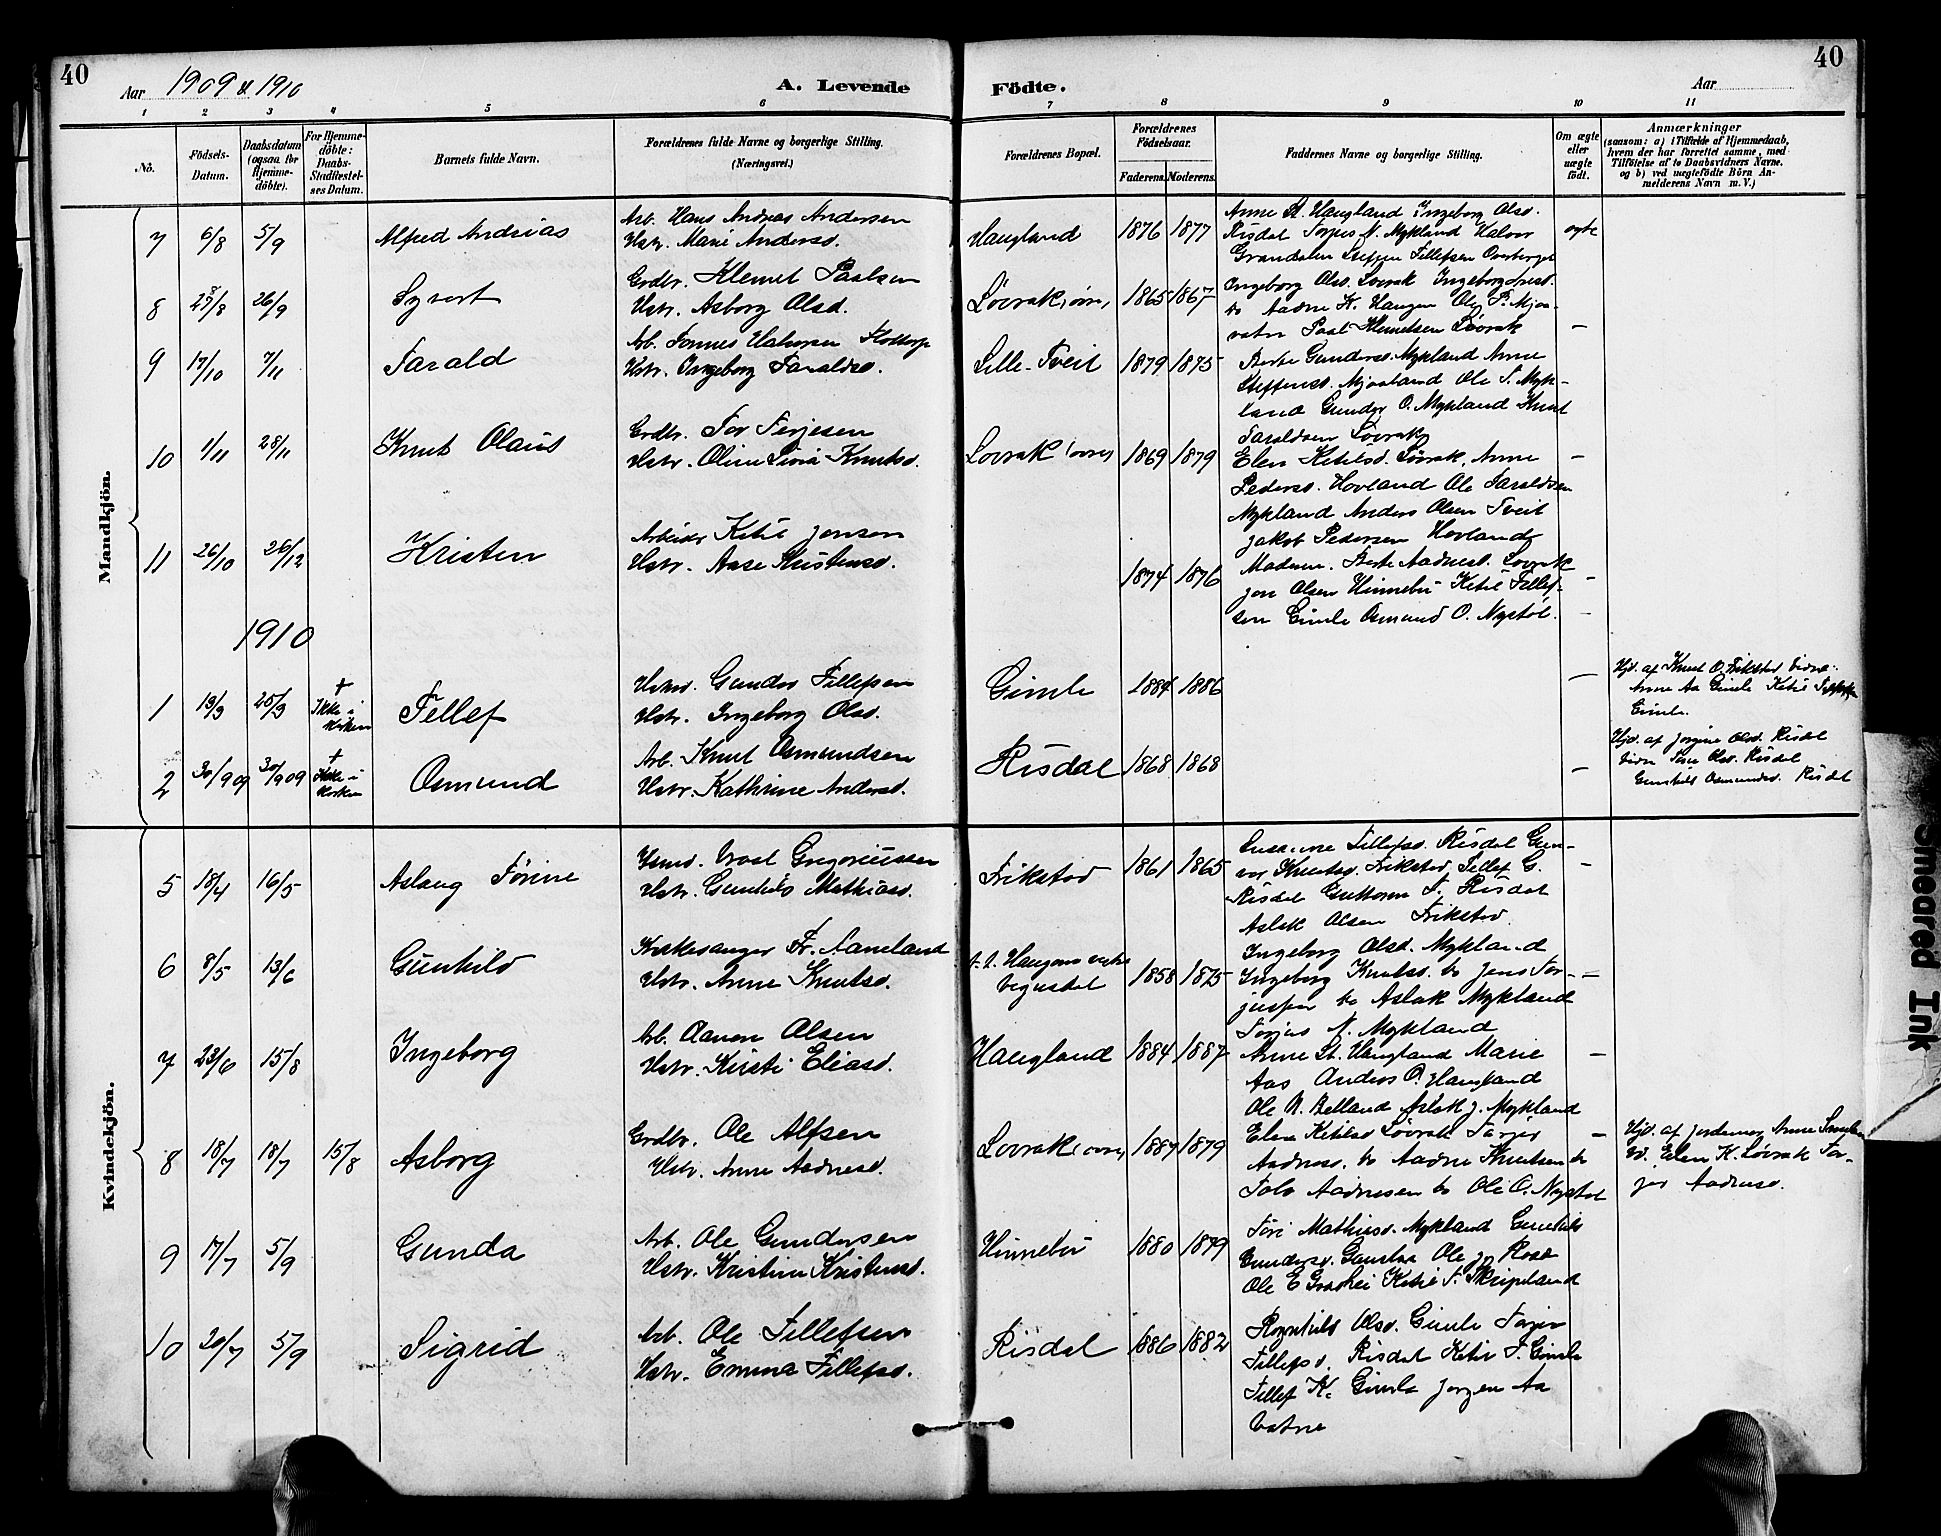 40
Aar 1909 & 1910
A. Levende
Födte.
Aar
40
1 2 3 4 5 6 7 8 9 10 11
No.
Födsels-
Datum.
Daabsdatum
(ogsaa for
Hjemme-
döbte).
For Hjemme-
döbte:
Daabs-
Stadfæstel-
ses Datum.
Barnets fulde Navn.
Forældrenes fulde Navne og borgerlige Stilling.
(Næringsvei.)
Forældrenes Bopæl.
Forældrenes
Födselsaar.
Faderens. Moderens.
Faddernes Navne og borgerlige Stilling.
Om ægte
eller
uægte
födt.
Anmærkninger
(saasom: a) i Tilfælde af Hjemmedaab,
hvem der har forrettet samme, med
Tilföielse af to Daabsvidners Navne.
og b) ved uægtefödte Börn An-
melderens Navn m. V.)
Mandkjön.
7 6/8 5/9 Alfred Andreas
Arb. Hans Andreas Andersen
Hstr. Marie Andersd.
Haugland 1876 1877
Anne St. Haugland Ingeborg Olsd.
Risdal Torjus N. Mykland Halvor
Grandalen Steffen Tellefsen
ægte
8 26/9 Syvert
Grdbr. Klemet Paalsen
Hstr. Asborg Olsd.
Løvrak, øvre, 1865 1867
Ingeborg Olsd. Løvrak Ingeborg
do Aadne K. Haugen Ole P. Mjaa-
vatn Paal Klemetsen Løvrak
–
9 17/10 7/11 Tarald
Arb. Tønnes Halvorsen
Hstr. Ingeborg Taraldsd.
Lille-Tveit 1879 1875
Berte Gundersd. Mykland Anne
Steffensd. Mjaaland Ole T. Myk-
land Gunder O. Mykland Knut
Taraldsen Løvrak
10 1/11 28/11 Knut Olaus
Grdbr. Tor Terjesen
Hstr. Oline Sivia Knutsd.
Løvrak (øvre) 1869 1879
Elen Ketilsd. Løvrak, Anne
Pedersd. Hovland Ole Taraldsen
Mykland Anders Olsen Tveit
Jakob Pedersen Hovland
–
11 26/10 26/12 Kristen
Arbeider Ketil Jensen
Hstr. Aase Kristensd.
1874 1876
Moderen. Berte Aadnesd. Løvrak
Jon Olsen Hinnebu Ketil Tellef-
sen Gimle Osmund O. Nystøl.
–
1910
1 19/3 25/3 † Ikke i kirken Tellef
Hsmd. Gunder Tellefsen
Hstr. Ingeborg Olsd.
Gimle 1884 1886
–
Hjd. af Knut O. Frikstad Vidne:
Anne Aa Gimle Ketil
Gimle.
2 30/9 09 30/9 09 † Ikke i kirken Osmund
Arb. Knut Osmundsen
Hstr. Kathrine Andersd.
Risdal 1868 1868
–
Hjd. af Jorgine Olsd. Risdal
Vidn Tine Olsd. Risdal
Gunhild Osmundsd. Risdal
Kvindekjön.
5 18/4 16/5 Aslaug Tørine
Hsmd. Vraal Gregoriussen
Hstr. Gunhild Mathiasd.
Frikstad 1861 1865
Susanne Tellefsd. Risdal Gun-
vor Knutsd. Frikstad Tellef G.
Risdal Guttorm T. Risdal
Aslak Olsen Frikstad
–
6 8/5 13/6 Gunhild
Kirkesanger Fr. Aaneland
Hstr. Anne Knutsd.
Haugen
Vegusdal 1858 1875
Ingeborg Olsd. Mykland
Ingeborg Knutsd. do Jens Tor-
jussen do Aslak Mykland
Torjus N. Mykland
–
7 23/6 15/8 Ingeborg
Arb. Aanon Olsen
Hstr. Kirsti Eliasd.
Haugland 1884 1887
Anne St. Haugland Marie
Aas Anders O. Haugland
Ole N. Belland Aslak J. Mykland
–
8 18/7 18/7 15/8 Asborg
Grdbr. Ole Alfsen
Hstr. Anne Aadnesd.
Løvrak (øvre) 1887 1879
Elen Ketilsd Løvrak Torjer
Aadnesd. do Aadne Knutsen do
Tolv Aadnesen do Ole O. Nystøl
–
Hjd. af Jordemor Anne
Vd. Elen K. Løvrak Tor-
jer Aadnesd.
9 17/7 5/9 Gunda
Arb. Ole Gundersen
Hstr. Kristine Kristensd.
Hinnebu 1880 1879
Tøri Mathiasd. Mykland Gunhild
Gundersd. Ganstaa Ole
Ole E Graahei Ketil T. Skripeland
10 20/7 5/9 Sigrid
Arb. Ole Tellefsen
Hstr. Emma Tellefsd.
Risdal 1886 1882
Ragnhild Olsd. Gimle Torjer
Tellefsd. Risdal Ketil T. Gimle
Tellef K. Gimle Jørgen Aa
Vatne
Smeared Ink